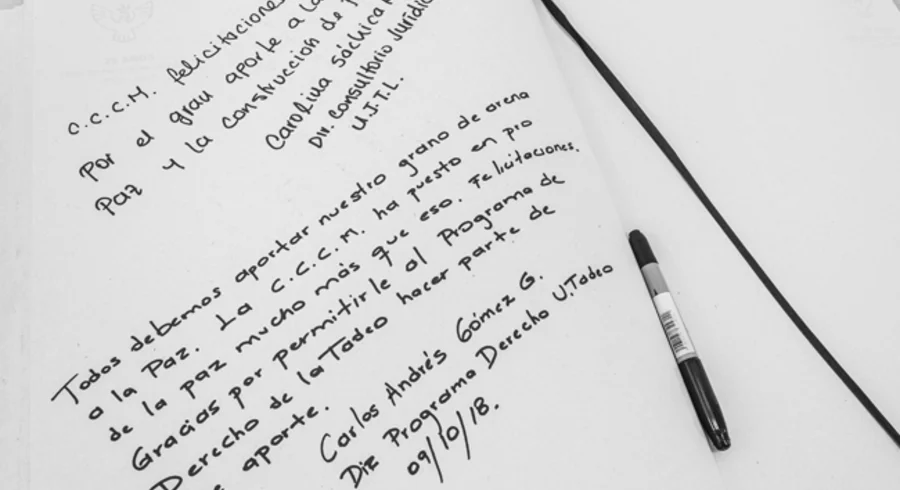 C.C.C.M. felicitaciones
por el gran aporte a la
Paz y la construcción de
Carolina Sáchica
Dir. Consultorio Jurídico
U.J.T.L.
Todos debemos aportar nuestro grano de arena
a la Paz. La C.C.C.M. ha puesto en pro
de la paz mucho más que eso. Felicitaciones.
Gracias por permitirle al Programa de
Derecho de la Tadeo hacer parte de
aporte.
Carlos Andrés Gómez G.
Dir Programa Derecho U.Tadeo
09/10/18.